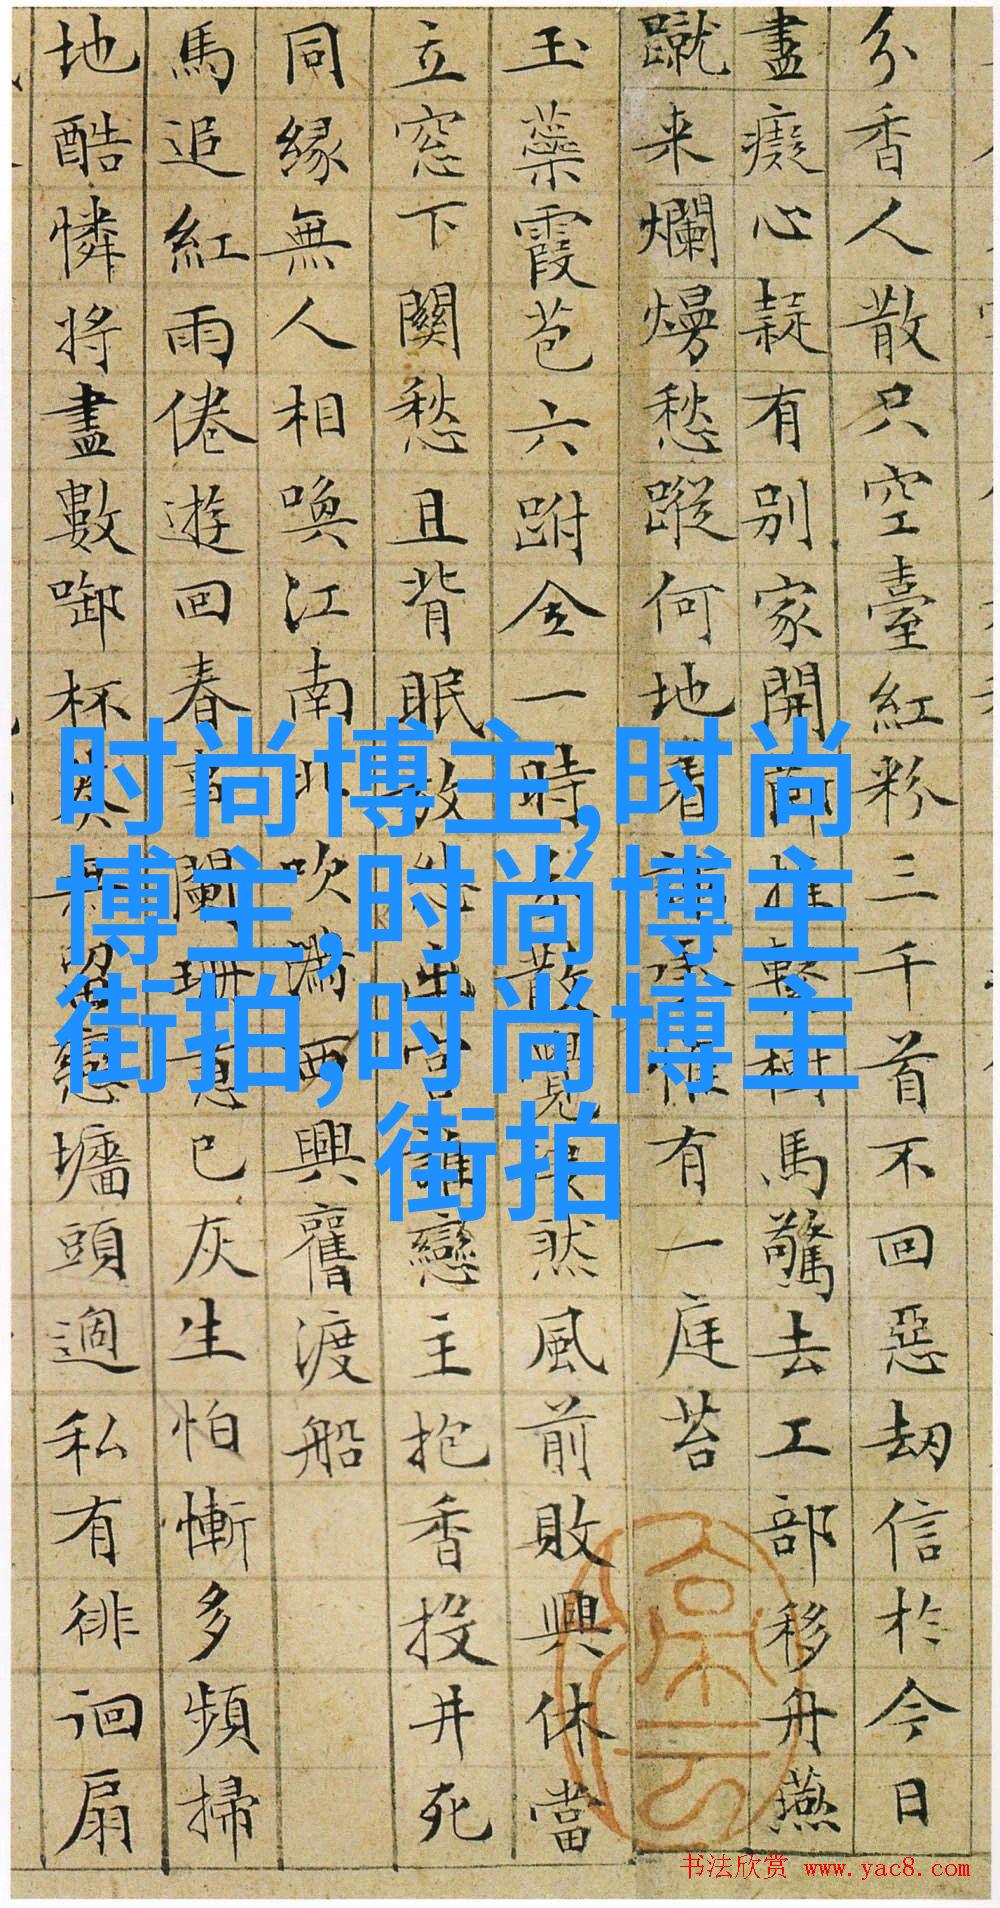 分香人散只空臺紅粉三千首不回惡劫信於今日
盡癡心疑有別家開推繫樹馬驚去工部移舟燕
蹴来爛熳愁蹤何地着惟有一庭苔
玉蘂霞苞六跗全一時散覺淒然風前敗興休當
立窓下關愁且背眠出宮誰戀主抱香投井死
同緣無人相喚江南北吹滿西興舊渡船
馬追紅雨倦遊回春事闌珊意已灰生怕慚多頻掃
地酷憐將盡數啣杯留戀墻頭過私有徘徊扇
时尚博主,时尚
博主,时尚博主
街拍,时尚博主
街拍
书法欣赏 www.yac8.com